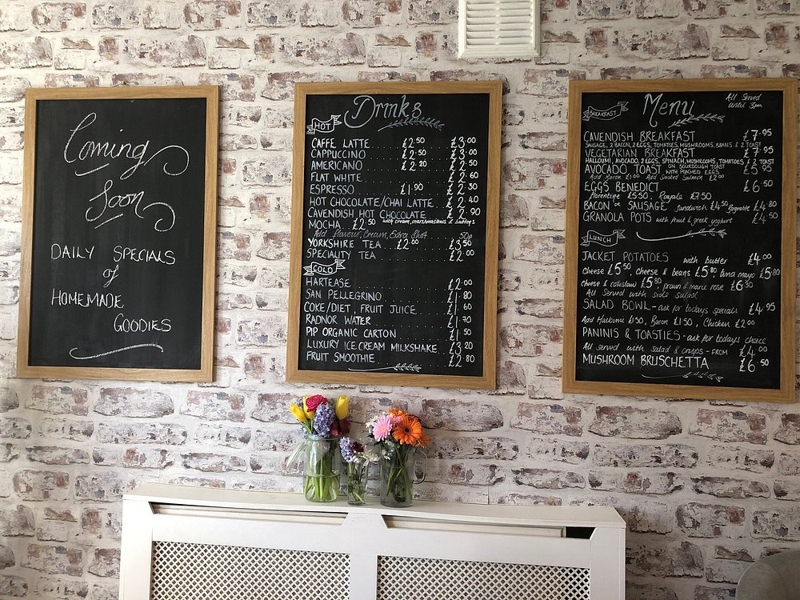 Coming
Soon
DAILY SPECIALS
of
HOMEMADE
GOODIES
Drinks
HOT
CAFFE LATTE £2.50 £3.00
CAPPUCCINO £2.50 £3.00
AMERICANO £2.20 £2.50
FLAT WHITE £2.60
ESPRESSO £1.90 £2.30
HOT CHOCOLATE/CHAI LATTE £2.40
CAVENDISH HOT CHOCOLATE £2.90
MOCHA £2.50 with cream, marshmallows &
Add Flavour, Cream, Extra Shot 50p
YORKSHIRE TEA £2.00 £3.50
SPECIALITY TEA £2.00
COLD
HARTEASE £2.00
SAN PELLEGRINO £1.80
COKE/DIET, FRUIT JUICE £1.60
RADNOR WATER £1.70
PIP ORGANIC CARTON £1.50
LUXURY ICE CREAM MILKSHAKE £3.20
FRUIT SMOOTHIE £2.80
Menu
All Served
Until 3pm
BREAKFAST
CAVENDISH BREAKFAST £7.95
SAUSAGE, 2 BACON, 2 EGGS, TOMATOES, MUSHROOMS, BEANS & 2 TOAST
VEGETARIAN BREAKFAST £7.95
HALLOUMI, AVOCADO, 2 EGGS, SPINACH, MUSHROOMS, TOMATOES, 2 TOAST
AVOCADO, TOAST ON SOURDOUGH TOAST WITH POACHED EGGS £5.95
Add Bacon Add Smoked Salmon £2.00
EGGS BENEDICT £6.50
florentine £5.50, Royale £7.50
BACON OR SAUSAGE Sandwich £4.50 Baguette £4.80
GRANOLA POTS with fruit & greek yoghurt £4.50
LUNCH
JACKET POTATOES with butter £4.00
cheese £5.50, cheese & beans £5.80 tuna mayo £5.80
cheese & coleslaw £5.50 prawn & marie rose £6.30
All Served with side salad
SALAD BOWL - ask for todays specials £4.95
Add Halloumi £1.50, Bacon £1.50, Chicken £2.00
PANINIS & TOASTIES - ask for todays choice
All served with salad & crisps - FROM £4.00
MUSHROOM BRUSCHETTA £6.50